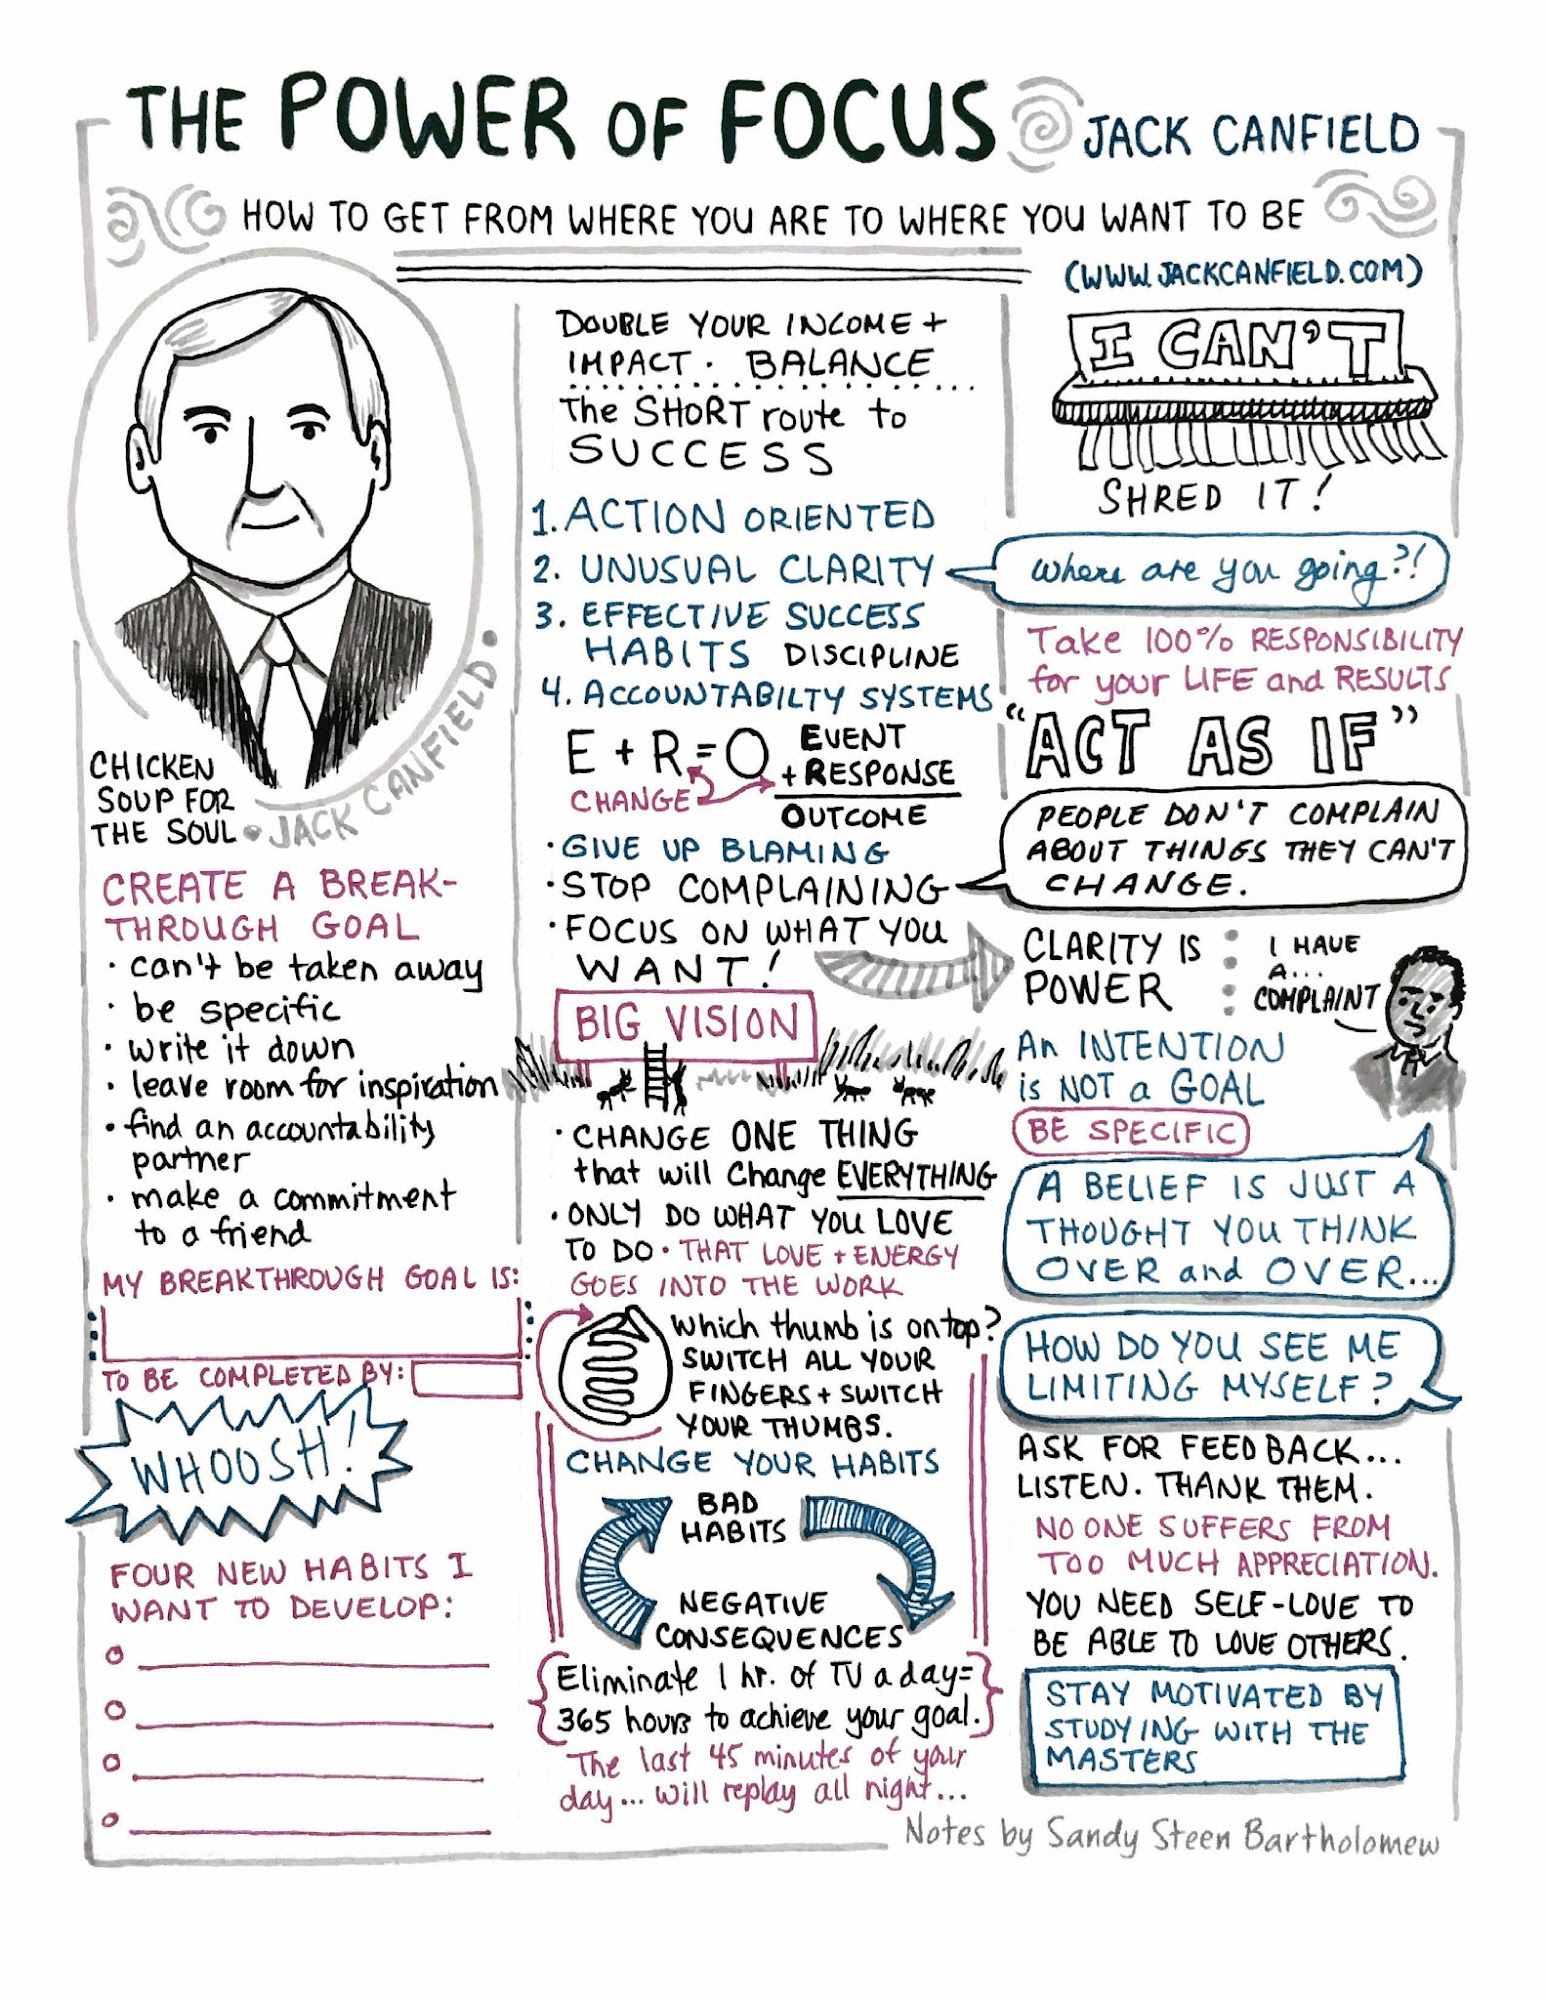 THE POWER OF FOCUS
JACK CANFIELD
HOW TO GET FROM WHERE YOU ARE TO WHERE YOU WANT TO BE
(WWW.JACKCANFIELD.COM)
CHICKEN
SOUP FOR
THE SOUL
• JACK CANFIELD •
CREATE A BREAK-
THROUGH GOAL
• can't be taken away
• be specific
• write it down
• leave room for inspiration
• find an accountability
partner
• make a commitment
to a friend
MY BREAKTHROUGH GOAL IS:
TO BE COMPLETED BY:
WHOOSH!
FOUR NEW HABITS I
WANT TO DEVELOP:
DOUBLE YOUR INCOME +
IMPACT • BALANCE
The SHORT route to
SUCCESS
1. ACTION ORIENTED
2. UNUSUAL CLARITY
3. EFFECTIVE SUCCESS
HABITS DISCIPLINE
4. ACCOUNTABILTY SYSTEMS
E + R = O
CHANGE
EVENT
+ RESPONSE
OUTCOME
• GIVE UP BLAMING
• STOP COMPLAINING
• FOCUS ON WHAT YOU
WANT!
BIG VISION
• CHANGE ONE THING
that will Change EVERYTHING
• ONLY DO WHAT YOU LOVE
TO DO • THAT LOVE + ENERGY
GOES INTO THE WORK
Which thumb is on top?
SWITCH ALL YOUR
FINGERS + SWITCH
YOUR THUMBS.
CHANGE YOUR HABITS
BAD
HABITS
NEGATIVE
CONSEQUENCES
Eliminate 1 hr. of TV a day =
365 hours to achieve your goal.
The last 45 minutes of your
day... will replay all night...
I CAN'T
SHRED IT!
Where are you going?!
Take 100% RESPONSIBILITY
for your LIFE and RESULTS
"ACT AS IF"
PEOPLE DON'T COMPLAIN
ABOUT THINGS THEY CAN'T
CHANGE.
CLARITY IS
POWER
I HAVE
A...
COMPLAINT
An INTENTION
is NOT a GOAL
BE SPECIFIC
A BELIEF IS JUST A
THOUGHT YOU THINK
OVER and OVER...
HOW DO YOU SEE ME
LIMITING MYSELF?
ASK FOR FEEDBACK...
LISTEN. THANK THEM.
NO ONE SUFFERS FROM
TOO MUCH APPRECIATION.
YOU NEED SELF-LOVE TO
BE ABLE TO LOVE OTHERS.
STAY MOTIVATED BY
STUDYING WITH THE
MASTERS
Notes by Sandy Steen Bartholomew